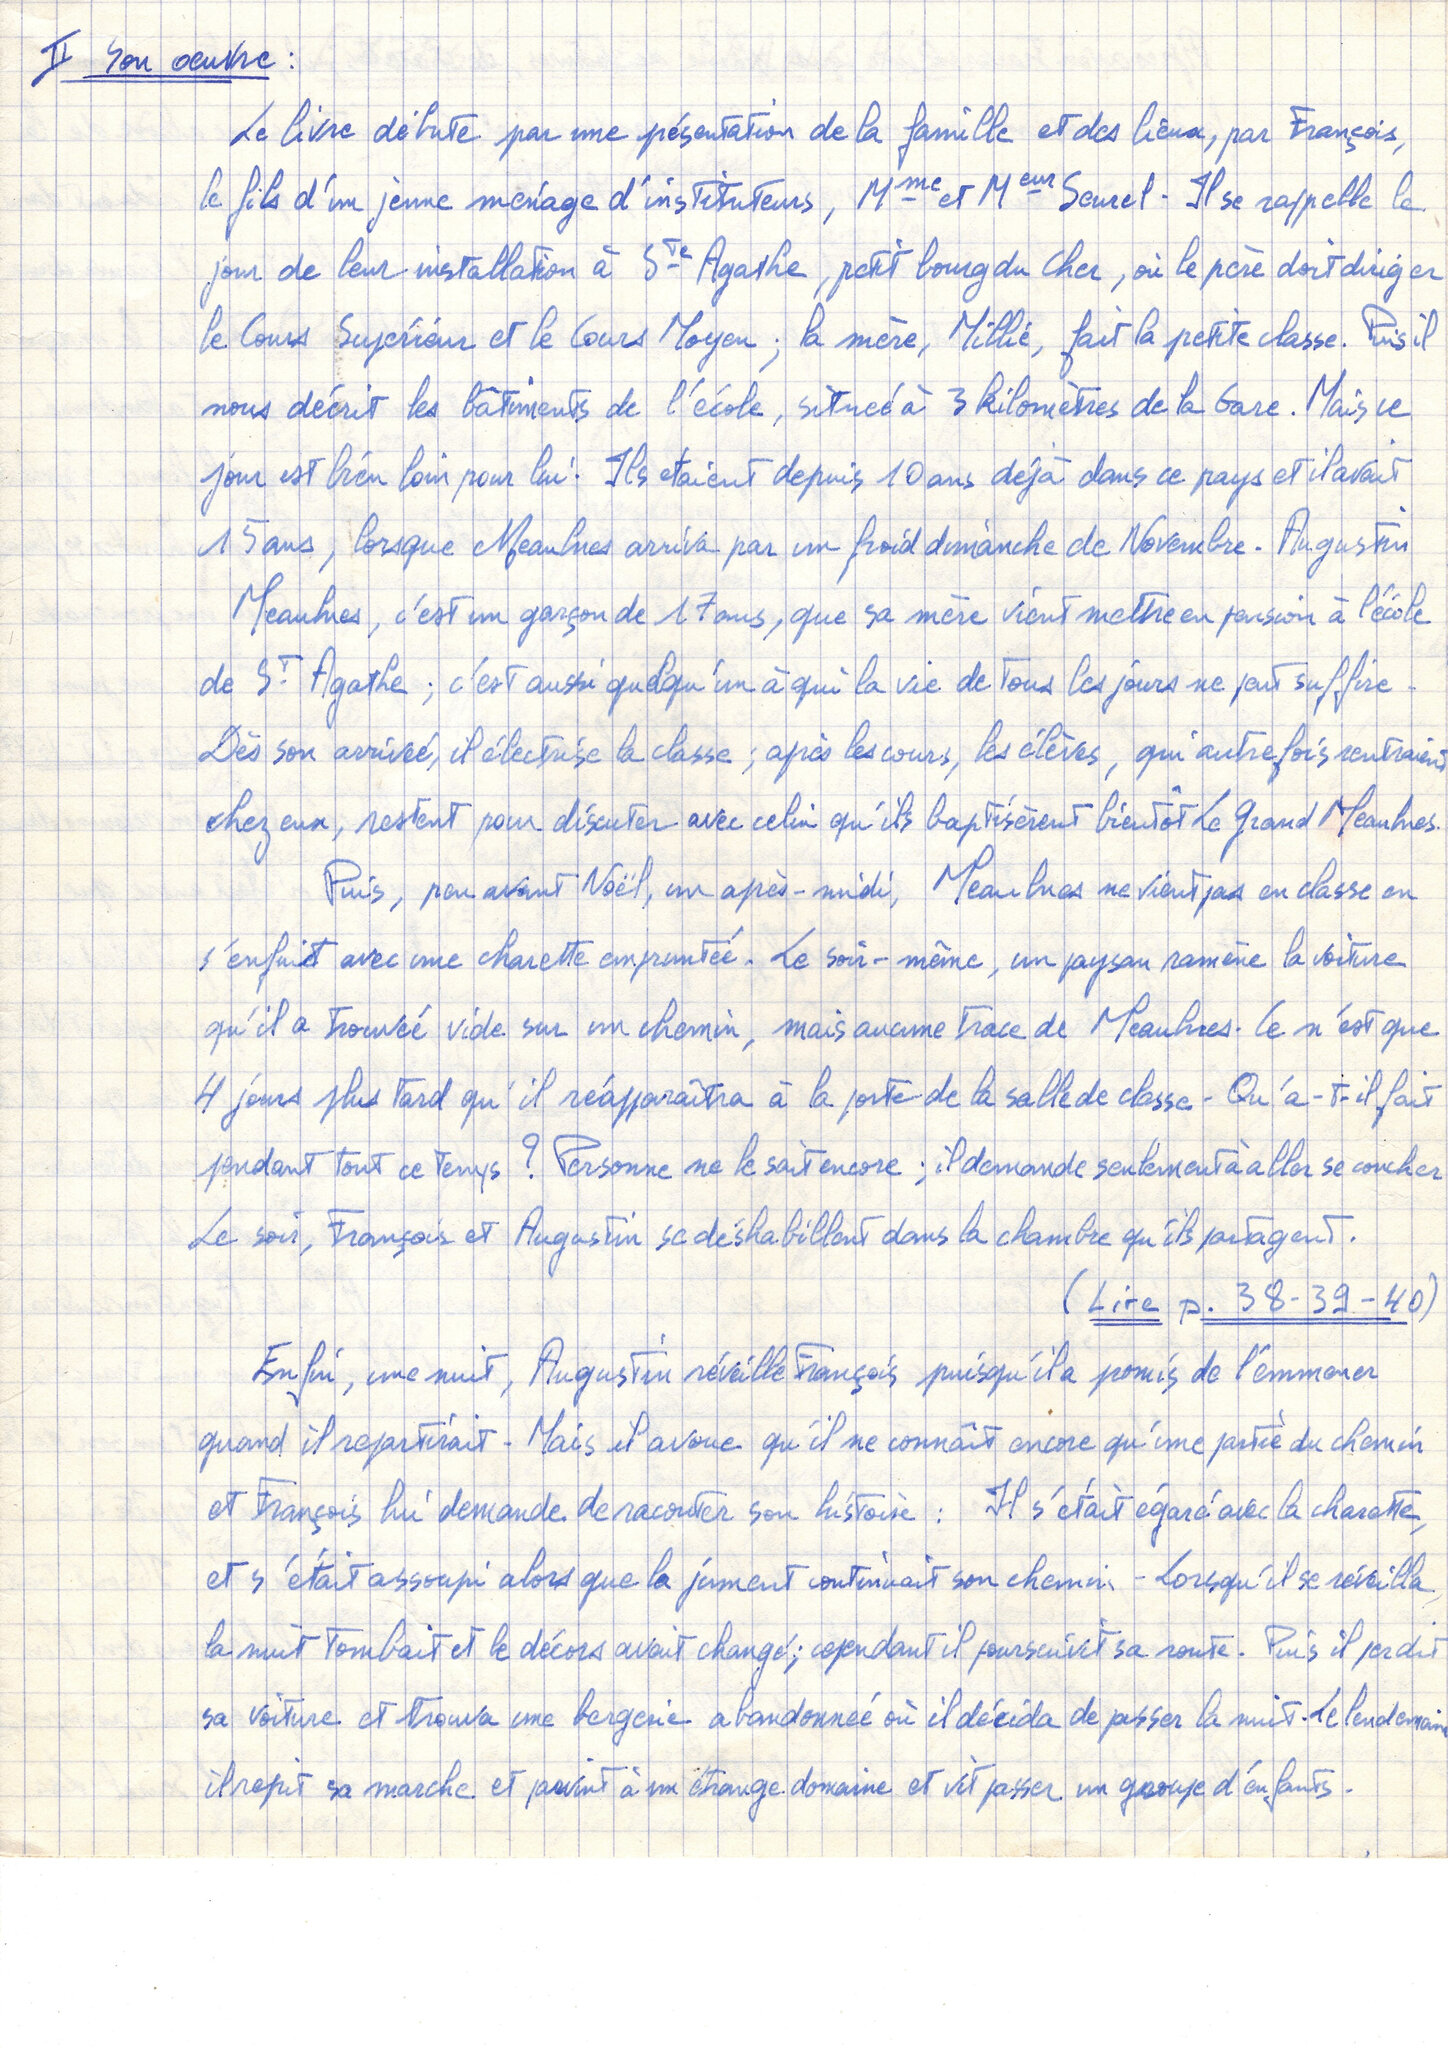 II Son oeuvre :
Le livre débute par une présentation de la famille et des lieux, par François,
le fils d'un jeune ménage d'instituteurs, Mme et Meur Seurel - Il se rappelle le
jour de leur installation à Ste Agathe, petit bourg du Cher, où le père doit diriger
le Cours Supérieur et le Cours Moyen ; la mère, Millie, fait la petite classe. Puis il
nous décrit les bâtiments de l'école, située à 3 kilomètres de la Gare. Mais ce
jour est bien loin pour lui. Ils étaient depuis 10 ans déjà dans ce pays et il avait
15 ans, lorsque Meaulnes arriva par un froid dimanche de Novembre. Augustin
Meaulnes, c'est un garçon de 17 ans, que sa mère vient mettre en pension à l'école
de St Agathe ; c'est aussi quelqu'un à qui la vie de tous les jours ne peut suffire.
Dès son arrivée, il électrise la classe ; après les cours, les élèves, qui autrefois rentraient
chez eux, restent pour discuter avec celui qu'ils baptisèrent bientôt Le Grand Meaulnes.
Puis, peu avant Noël, un après-midi, Meaulnes ne vient pas en classe en
s'enfuit avec une charette empruntée. Le soir-même, un paysan ramène la voiture
qu'il a trouvée vide sur un chemin, mais aucune trace de Meaulnes. Ce n'est que
4 jours plus tard qu'il réapparaîtra à la porte de la salle de classe - Qu'a-t-il fait
pendant tout ce temps ? Personne ne le sait encore ; il demande seulement à aller se coucher
Le soir, François et Augustin se déshabillent dans la chambre qu'ils partagent.
(Lire p. 38-39-40)
Enfin, une nuit, Augustin réveille François puisqu'il a promis de l'emmener
quand il repartirait - Mais il avoue qu'il ne connaît encore qu'une partie du chemin
et François lui demande de raconter son histoire : Il s'était égaré avec la charette,
et s'était assoupi alors que la jument continuait son chemin - Lorsqu'il se réveilla,
la nuit tombait et le décors avait changé ; cependant il poursuivit sa route. Puis il perdit
sa voiture et trouva une bergerie abandonnée où il décida de passer la nuit. Le lendemain
il reprit sa marche et parvint à un étrange domaine et vit passer un groupe d'enfants.